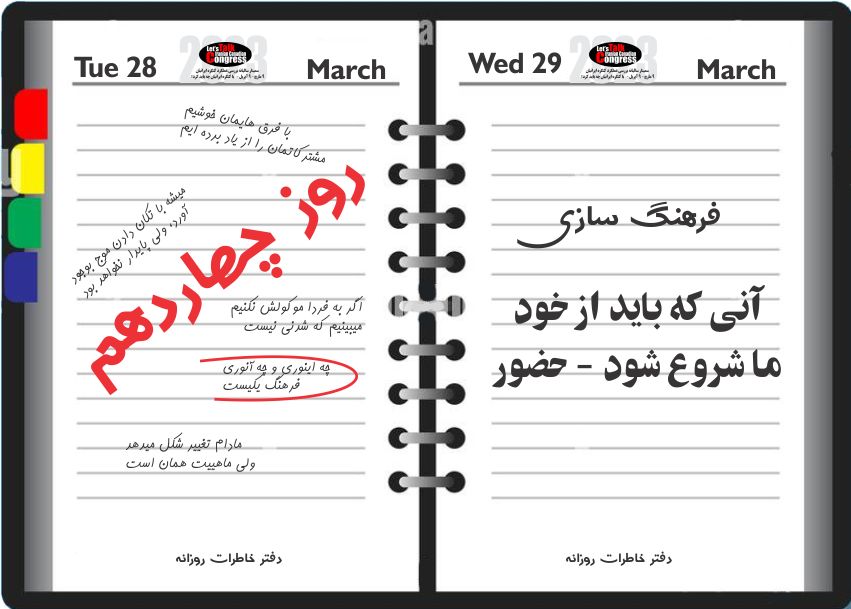 Tue 28
2023
Let's Talk
Iranian Canadian
Congress
March
با فرق هایمان خوشیم
مشترکاتمان را از یاد برده ایم
روز چهاردهم
میشه با تکان دادن موج بوجود
آورد، ولی پایدار نخواهد بود
اگر به فردا موکولش نکنیم
میبینیم که شدنی نیست
چه اینوری و چه آنوری
فرهنگ یکیست
مادام تغییر شکل میدهد
ولی ماهییت همان است
دفتر خاطرات روزانه
Wed 29
2023
Let's Talk
Iranian Canadian
Congress
March
فرهنگ سازی
آنی که باید از خود
ما شروع شود - حضور
دفتر خاطرات روزانه